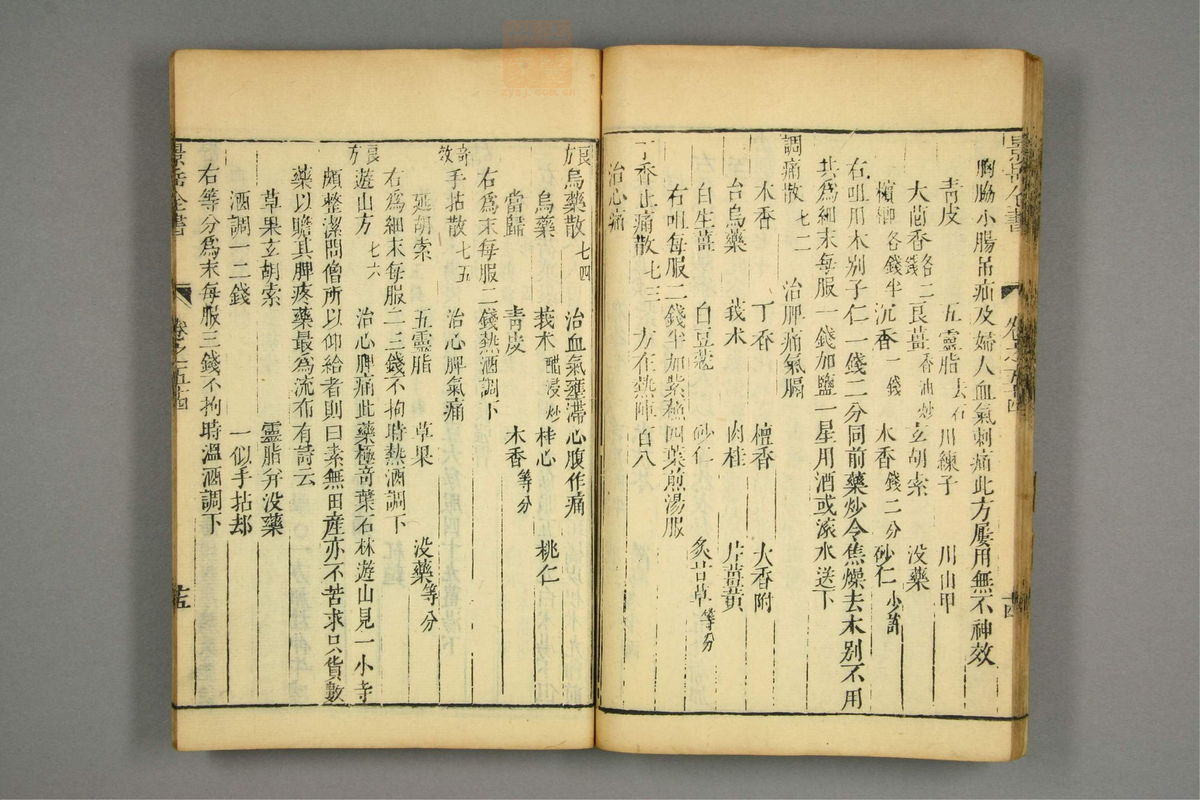 胸脇小腸吊疝及婦人血氣刺痛此方屢用無不神效
青皮 五靈脂去石 川練子 川山甲
大茴香各二錢 良薑香油炒 玄胡索 没藥
檳榔各錢半 沉香一錢 木香錢二分 砂仁少許
右咀用木别子仁一錢二分同前藥炒令焦燥去木别不用
共爲細末每服一錢加鹽一星用酒或滚水送下
調痛散七二 治脾痛氣膈
木香 丁香 檀香 大香附
台烏藥 莪术 肉桂 片薑黄
白生薑 白豆蔻 砂仁 炙甘草等分
右咀每服二錢半加紫蘇四葉煎湯服
丁香止痛散七三 方在熱陣百八
治心痛
良方烏藥散七四 治血氣壅滯心腹作痛
烏藥 莪术醋浸炒 桂心 桃仁
當歸 青皮 木香等分
右爲末每服二錢熱酒調下
奇效手拈散七五 治心脾氣痛
延胡索 五靈脂 草果 没藥等分
右爲細末每服二三錢不拘時熱酒調下
良方遊山方七六 治心脾痛此藥極奇葉石林遊山見一小寺
頗整潔問僧所以仰給者則曰素無田産亦不苦求只貨數
藥以贍其脾疼藥最爲流布有詩云
草果玄胡索 靈脂弁没藥
酒調一二錢 一似手拈却
右等分爲末每服三錢不拘時温酒調下
景岳全書 卷之五十四